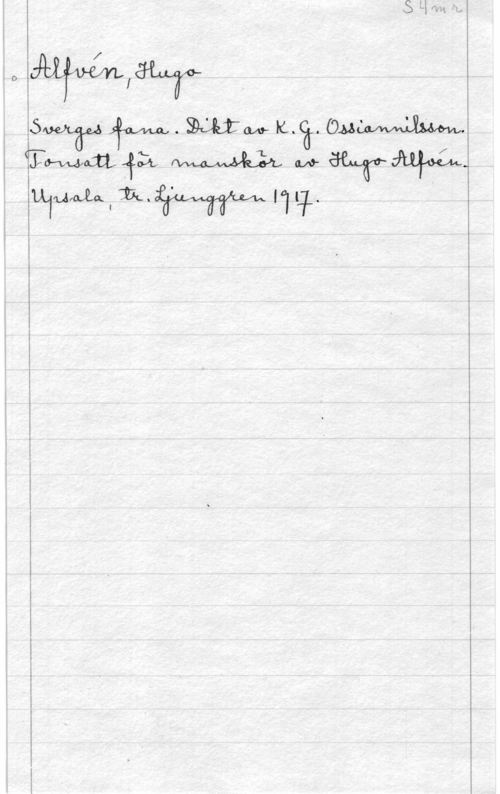 S4mr
Alfvén, Hugo
Sverges fana. Dikt av K. G. Ossiannilsson.
Tonsatt för manskör av Hugo Alfvén.
Upsala, tr. Ljunggren 1917.